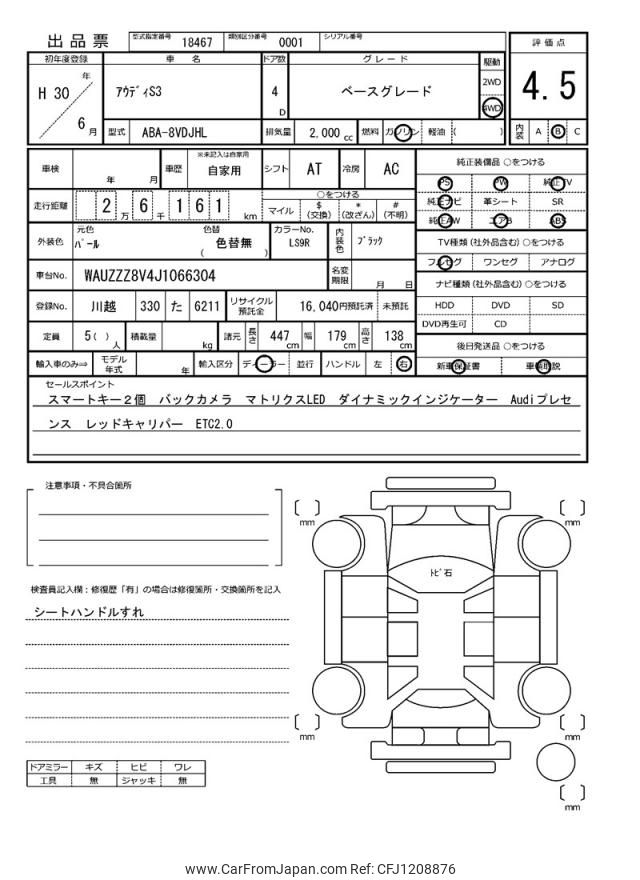 出品票 型式指定番号 18467 類別区分番号 0001 シリアル番号
評価点
4.5
内装 A B C
初年度登録 車名 ドア数 グレード 駆動
H 30 年 6 月 アウディS3 4 D ベースグレード 2WD 4WD
型式 ABA-8VDJHL 排気量 2,000 cc 燃料 ガソリン 軽油 ( )
車検 年 月 車歴 ※未記入は自家用 自家用 シフト AT 冷房 AC
走行距離 2 万 6 千 1 6 1 km ○をつける
マイル $ (交換) * (改ざん) # (不明)
外装色 元色 パール 色替 色替無 ( ) カラーNo. LS9R 内装色 ブラック
車台No. WAUZZZ8V4J1066304 名変期限 月 日
登録No. 川越 330 た 6211 リサイクル預託金 16,040円預託済 未預託
定員 5( ) 人 積載量 kg 諸元 長さ 447 cm 幅 179 cm 高さ 138 cm
輸入車のみ⇒ モデル年式 年 輸入区分 ディーラー 並行 ハンドル 左 右
純正装備品 ○をつける
PS PW 純正TV
純正ナビ 革シート SR
純正AW エアB ABS
TV種類 (社外品含む) ○をつける
フルセグ ワンセグ アナログ
ナビ種類 (社外品含む) ○をつける
HDD DVD SD
DVD再生可 CD
後日発送品 ○をつける
新車保証書 車輌取説
セールスポイント
スマートキー2個 バックカメラ マトリクスLED ダイナミックインジケーター Audiプレセ
ンス レッドキャリパー ETC2.0
注意事項・不具合箇所
検査員記入欄：修復歴「有」の場合は修復箇所・交換箇所を記入
シートハンドルすれ
ドアミラー キズ ヒビ ワレ
工具 無 ジャッキ 無
mm
mm
トビ石
mm
mm
mm
www.CarFromJapan.com Ref: CFJ1208876